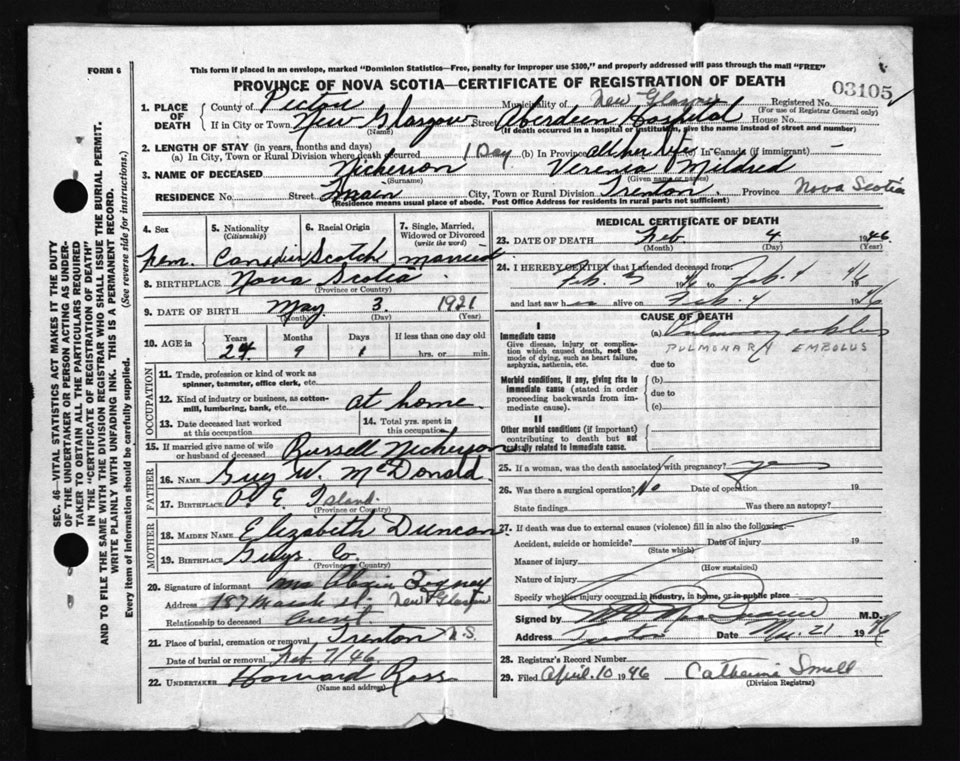 FORM 6
This form if placed in an envelope, marked "Dominion Statistics—Free, penalty for improper use $300," and properly addressed will pass through the mail "FREE"
PROVINCE OF NOVA SCOTIA—CERTIFICATE OF REGISTRATION OF DEATH
03105
1. PLACE OF DEATH County of Pictou Municipality of New Glasgow Registered No.
(For use of Registrar General only)
If in City or Town New Glasgow Street Aberdeen Hospital House No.
(Name) (If death occurred in a hospital or institution, give the name instead of street and number)
2. LENGTH OF STAY (in years, months and days)
(a) In City, Town or Rural Division where death occurred 1 Day (b) In Province all her life In Canada (if immigrant) —
3. NAME OF DECEASED Nickerson Verenia Mildred
(Surname) (Given name or names)
RESIDENCE No. Street Main City, Town or Rural Division Trenton Province Nova Scotia
(Residence means usual place of abode. Post Office Address for residents in rural parts not sufficient)
4. Sex 5. Nationality (Citizenship) 6. Racial Origin 7. Single, Married, Widowed or Divorced (write the word)
Fem. Canadian Scotch married
8. BIRTHPLACE Nova Scotia
(Province or Country)
9. DATE OF BIRTH May 3 1921
(Month) (Day) (Year)
10. AGE in Years Months Days If less than one day
24 9 1 hrs. or min.
OCCUPATION
11. Trade, profession or kind of work as spinner, teamster, office clerk, etc.
12. Kind of industry or business, as cotton-mill, lumbering, bank, etc. at home
13. Date deceased last worked at this occupation
14. Total yrs. spent in this occupation
15. If married give name of wife or husband of deceased Russell Nickerson
FATHER
16. NAME Guy W. McDonald
17. BIRTHPLACE P. E. Island
(Province or Country)
MOTHER
18. MAIDEN NAME Elizabeth Duncan
19. BIRTHPLACE Guys. Co.
(Province or Country)
20. Signature of informant Mrs
Address 187 St. New Glasgow
Relationship to deceased Aunt
21. Place of burial, cremation or removal Trenton N.S.
Date of burial or removal Feb 7/46
22. UNDERTAKER Howard Ross
(Name and address)
MEDICAL CERTIFICATE OF DEATH
23. DATE OF DEATH Feb 4 1946
(Month) (Day) (Year)
24. I HEREBY CERTIFY that I attended deceased from:
Feb. 3 1946 to Feb. 4 1946
and last saw her alive on Feb. 4 1946
CAUSE OF DEATH
I
Immediate cause
Give disease, injury or complication which caused death, not the mode of dying, such as heart failure, asphyxia, asthenia, etc.
(a) Pulmonary embolus
PULMONARY EMBOLUS
due to
Morbid conditions, if any, giving rise to immediate cause (stated in order proceeding backwards from immediate cause).
(b)
due to
(c)
II
Other morbid conditions (if important) contributing to death but not causally related to immediate cause.
25. If a woman, was the death associated with pregnancy? yes
26. Was there a surgical operation? No Date of operation 19
State findings Was there an autopsy?
27. If death was due to external causes (violence) fill in also the following:—
Accident, suicide or homicide? Date of injury 19
(State which)
Manner of injury
(How sustained)
Nature of injury
Specify whether injury occurred in industry, in home, or in public place
Signed by M.D.
Address Trenton Date Mar. 21 1946
28. Registrar's Record Number
29. Filed April 10 1946 Catherine Small
(Division Registrar)
SEC. 46—VITAL STATISTICS ACT MAKES IT THE DUTY
OF THE UNDERTAKER OR PERSON ACTING AS UNDER-
TAKER TO OBTAIN ALL THE PARTICULARS REQUIRED
IN THE "CERTIFICATE OF REGISTRATION OF DEATH"
AND TO FILE THE SAME WITH THE DIVISION REGISTRAR WHO SHALL ISSUE THE BURIAL PERMIT.
WRITE PLAINLY WITH UNFADING INK. THIS IS A PERMANENT RECORD.
Every item of information should be carefully supplied. (See reverse side for instructions.)